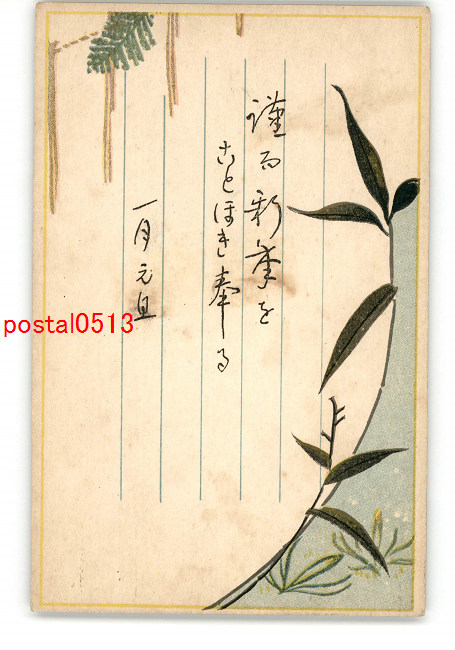 謹而新年を
ことほぎ奉る
一月元旦
postal0513